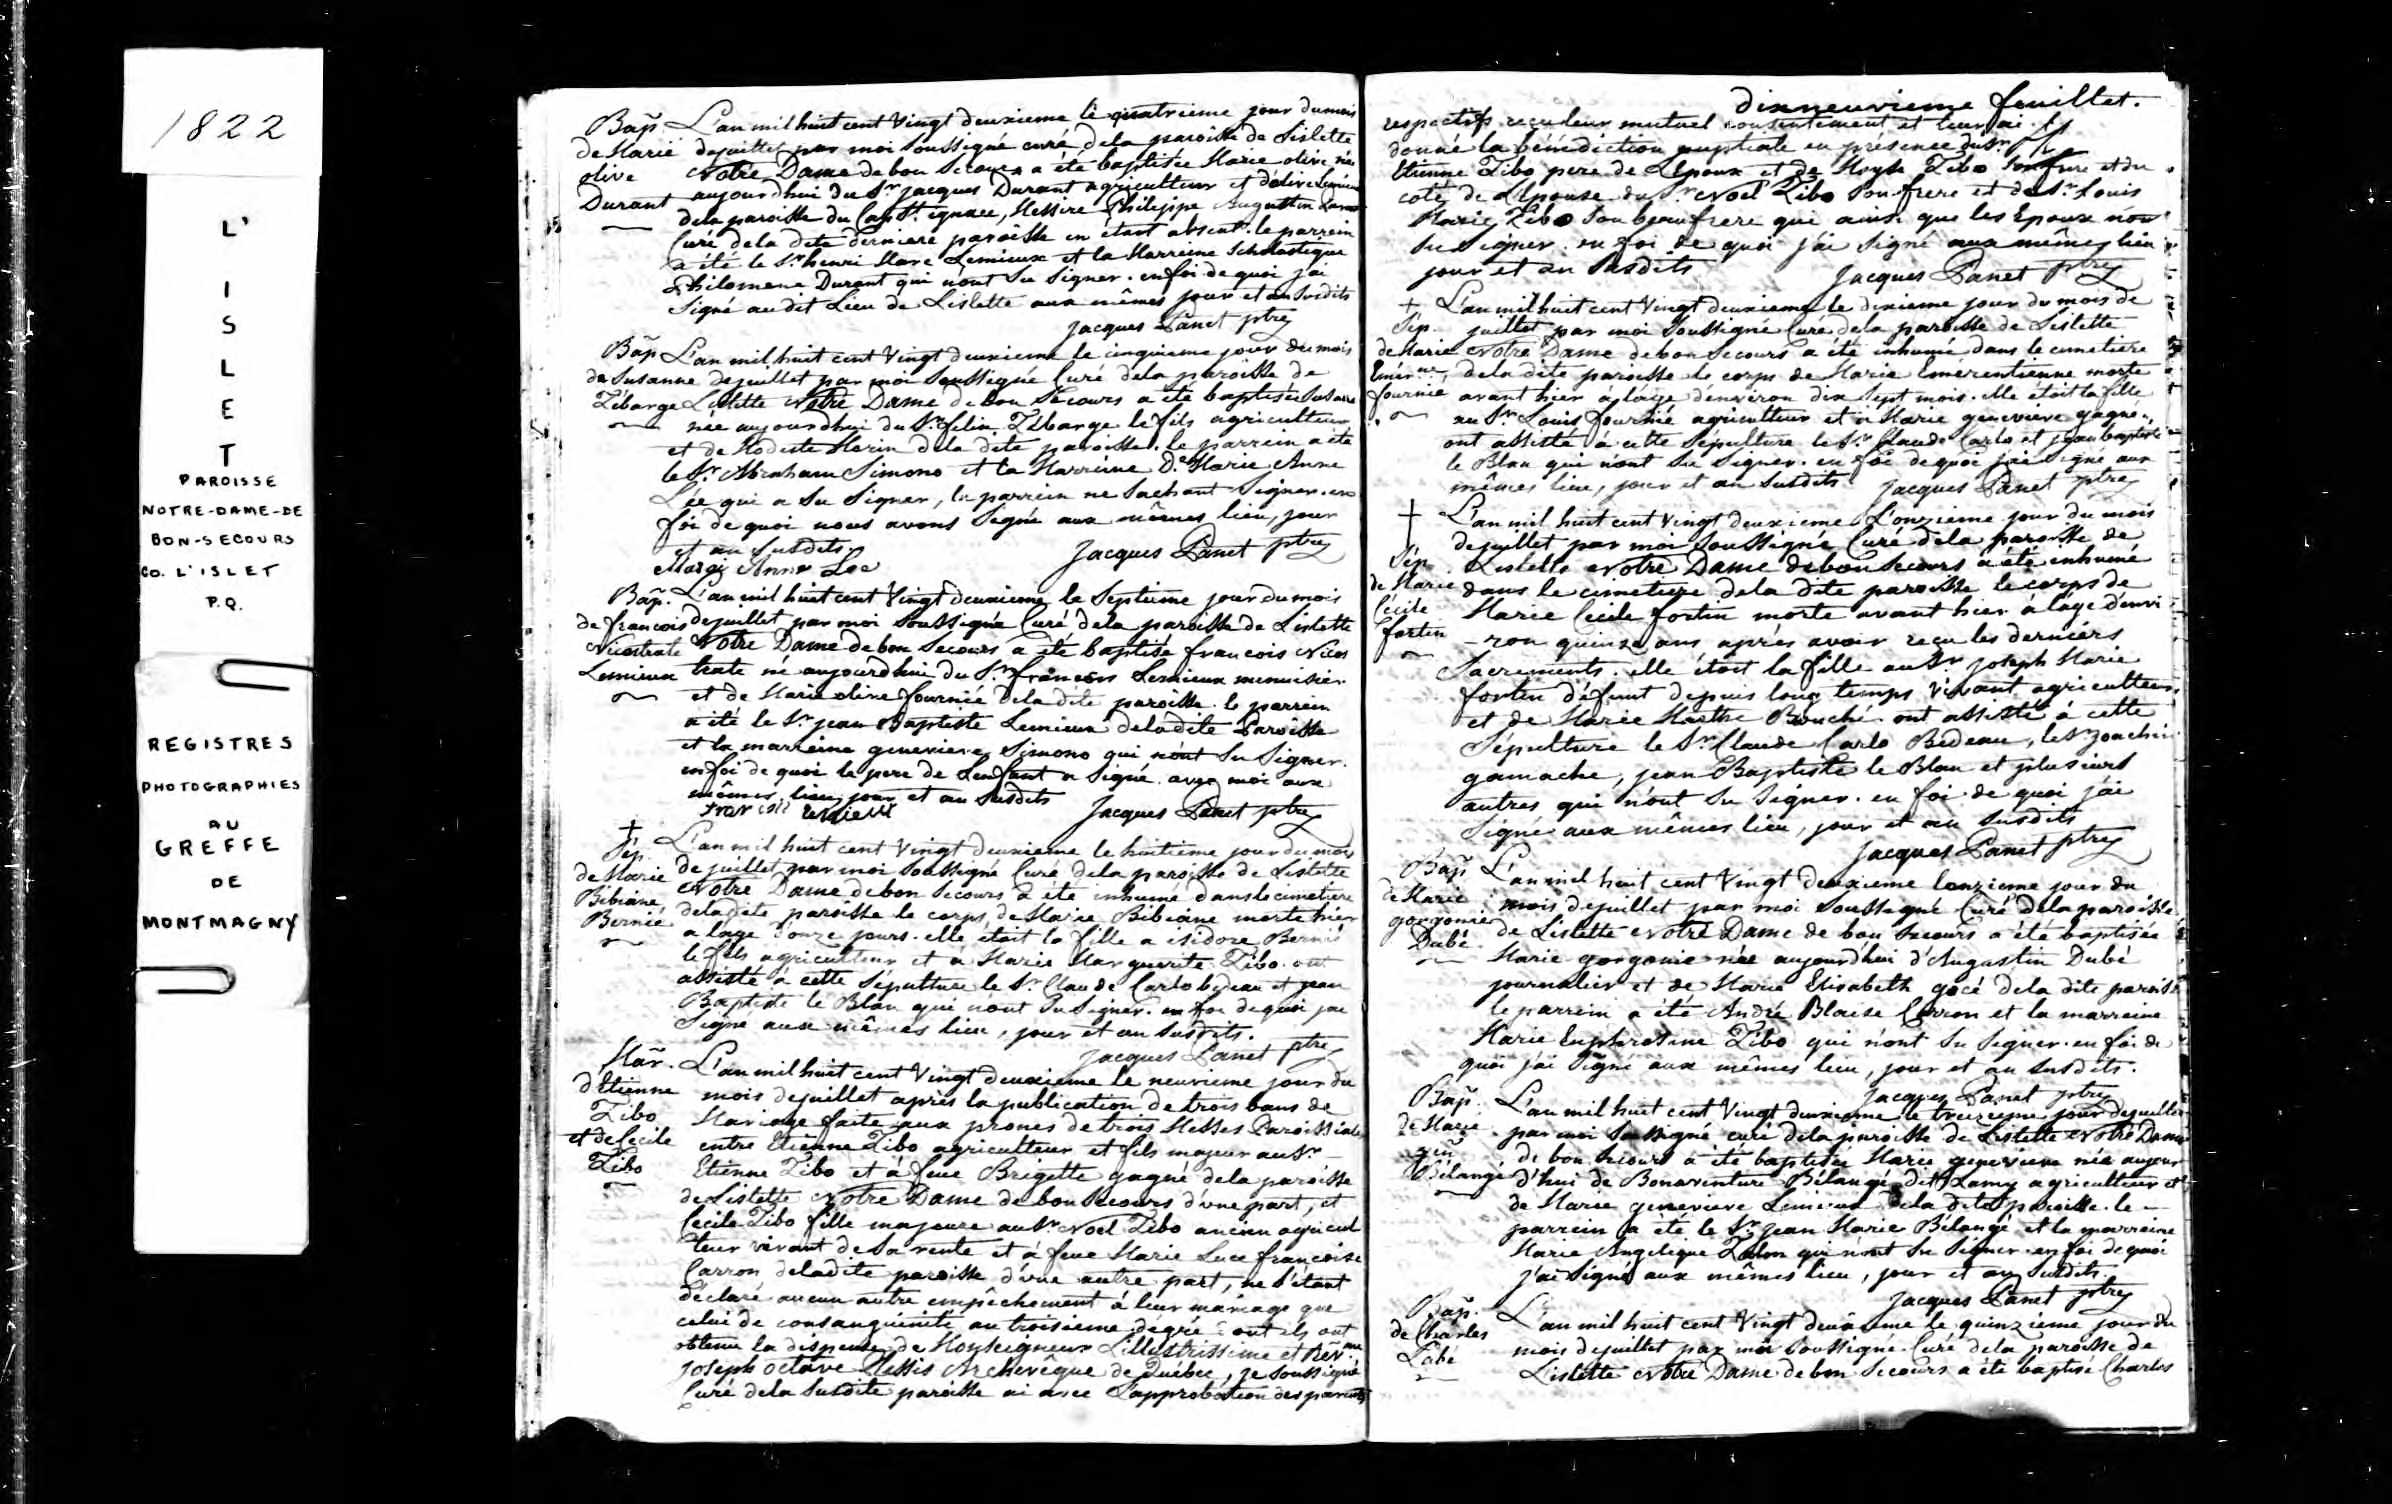 1822
L'
I
S
L
E
T
PAROISSE
NOTRE-DAME-DE
BON-SECOURS
CO. L'ISLET
P.Q.
REGISTRES
PHOTOGRAPHIES
AU
GREFFE
DE
MONTMAGNY
Bap. L'an mil huit cent Vingt deuxieme le quatrieme jour du mois
de Marie dejuillet par moi Soussigné curé dela paroisse de Lislette
olive Notre Dame de bon Secours a été baptisée Marie olive née
Durant aujourdhui du Sr jacques Durant agriculteur et d'olive Lemieux
dela paroisse du Cap St ignace, Messire Philippe Augustin
Curé dela dite derniere paroisse en étant absent. le parrein
a été le Sr henri Marc Lemieux et la Marreine Scholastique
Philomene Durant qui n'ont Su Signer. en foi de quoi j'ai
Signé au dit Lieu de Lislette aux mêmes jour et an Susdits
Jacques Panet ptre
Bap L'an mil huit cent Vingt deuxieme le cinquieme jour du mois
de Susanne dejuillet par moi Soussigné Curé dela paroisse de
Zébarge Lislette Notre Dame de bon Secours a été baptisée Susanne
née aujourdhui du Sr felix Zébarge le fils agriculteur
et de Modeste Morin dela dite paroisse. le parrein a été
le Sr Abraham Simono et la Marreine De Marie Anne
Lée qui a Su Signer, le parrein ne Sachant Signer. en
foi de quoi nous avons Signé aux mêmes lieu, jour
et an Susdits
Marie Anne Lee Jacques Panet ptre
Bap. L'an mil huit cent Vingt deuxieme le Septieme jour du mois
de francois dejuillet par moi Soussigné Curé dela paroisse de Lislette
Nicostrate Notre Dame de bon Secours a été baptisé francois Nicos
Lemieux trate né aujourdhui du Sr francois Lemieux menuisier
et de Marie olive fournié dela dite paroisse. le parrein
a été le Sr jean Baptiste Lemieux dela dite Paroisse
et la marreine genevieve Simono qui n'ont Su Signer.
en foi de quoi le pere de L'enfant a Signé avec moi aux
mêmes lieu, jour et an Susdits
Jacques Panet ptre
+
Sép. L'an mil huit cent Vingt deuxieme le huitieme jour du mois
de Marie de juillet par moi Soussigné Curé dela paroisse de Lislette
Bibiane Notre Dame de bon Secours a été inhumé dans le cimetiere
Bernié dela dite paroisse le corps de Marie Bibiane morte hier
a lage d'onze jours. elle était la fille a isidore Bernié
le fils agriculteur et a Marie Marguerite Zibo. ont
assisté à cette Sépulture le Sr Claude Carlo bideau et jean
Baptiste le Blan qui n'ont Su Signer. en foi de quoi jai
Signé aux mêmes lieu, jour et an Susdits.
Jacques Panet ptre
Mar. L'an mil huit cent Vingt deuxieme le neuvieme jour du
d'Etienne mois dejuillet après la publication de trois bans de
Zibo Mariage faite aux prones de trois Messes Paroissiales
et de Cecile entre Etienne Zibo agriculteur et fils majeur au Sr
Zibo Etienne Zibo et à feue Brigette gagné dela paroisse
de Lislette Notre Dame de bon Secours d'une part, et
Cecile Zibo fille majeure au Sr Noel Zibo ancien agricul
teur vivant de Sa rente et à feue Marie Luce francoise
Carron dela dite paroisse d'une autre part, ne S'étant
déclaré aucun autre empêchement à leur mariage que
celui de consanguinité au troisieme dégré dont ils ont
obtenu la dispense de Monseigneur L'illustrissime et Révme
Joseph octave Plessis Archevêque de Québec, je Soussigné
Curé dela Susdite paroisse ai avec L'approbation des parents
dixneuvieme feuillet.
respectifs reçu leur mutuel consentement et leur ai
donné la bénédiction nuptiale en présence du Sr
Etienne Zibo pere de L'Epoux et de Moyse Zibo Son frere et du
coté de L'Epouse du Sr Noel Zibo Son frere et du Sr Louis
Marie Zibo Son beaufrere qui ainsi que les Epoux n'ont
Su Signer. en foi de quoi j'ai Signé aux mêmes lieu
jour et an Susdits Jacques Panet ptre
+ L'an mil huit cent Vingt deuxieme le dixieme jour du mois de
Sép. juillet par moi Soussigné Curé dela paroisse de Lislette
de Marie Notre Dame de bon Secours a été inhumé dans le cimetiere
Emerne dela dite paroisse le corps de Marie Emerentienne morte
fournié avant hier à lâge d'environ dix Sept mois. elle étoit la fille
au Sr Louis fournié agriculteur et à Marie genevieve gagné.
ont assisté à cette Sépulture le Sr Claude Carlo et jean baptiste
le Blan qui n'ont Su Signer. en foi de quoi j'ai Signé aux
mêmes lieu, jour et an Susdits. Jacques Panet ptre
+ L'an mil huit cent Vingt deuxieme L'onzieme jour du mois
dejuillet par moi Soussigné Curé dela paroisse de
Sép Lislette Notre Dame de bon Secours a été inhumé
de Marie dans le cimetiere dela dite paroisse le corps de
Cécile Marie Cecile fortin morte avant hier à lâge d'envi
fortin -ron quinze ans après avoir reçu les derniers
Sacrements. elle étoit la fille au Sr joseph Marie
fortin défunt depuis long temps vivant agriculteur
et de Marie Marthe Bouché. ont assisté à cette
Sépulture le Sr Claude Carlo Bideau, le Sr Joachin
gamache, jean Baptiste le Blan et plusieurs
autres qui n'ont Su Signer. en foi de quoi j'ai
Signé aux mêmes lieu, jour et an Susdits
Jacques Panet ptre
Bap L'an mil huit cent Vingt deuxieme lonzieme jour du
de Marie mois dejuillet par moi Soussigné Curé dela paroisse
gorgonie de Lislette Notre Dame de bon Secours a été baptisée
Dubé Marie gorgonie née aujourdhui d'Augustin Dubé
journalier et de Marie Elisabeth gocé dela dite paroisse
le parrein a été André Blaise Carron et la marreine
Marie Euphrosine Zibo qui n'ont Su Signer. en foi de
quoi j'ai Signé aux mêmes lieu, jour et an Susdits.
Jacques Panet ptre
Bap. L'an mil huit cent Vingt deuxieme le treizieme jour dejuillet
de Marie par moi Soussigné curé dela paroisse de Lislette Notre Dame
gen de bon Secours a été baptisée Marie genevieve née aujour
Bélangé d'hui de Bonaventure Bélangé dit Lamy agriculteur et
de Marie genevieve Lemieux dela dite paroisse. le
parrein a été le Sr jean Marie Bélangé et la marreine
Marie Angelique qui n'ont Su Signer. en foi de quoi
j'ai Signé aux mêmes lieu, jour et an Susdits.
Jacques Panet ptre
Bap. L'an mil huit cent Vingt deuxieme le quinzieme jour du
de Charles mois dejuillet par moi Soussigné Curé dela paroisse de
Labé Lislette Notre Dame de bon Secours a été baptisé Charles